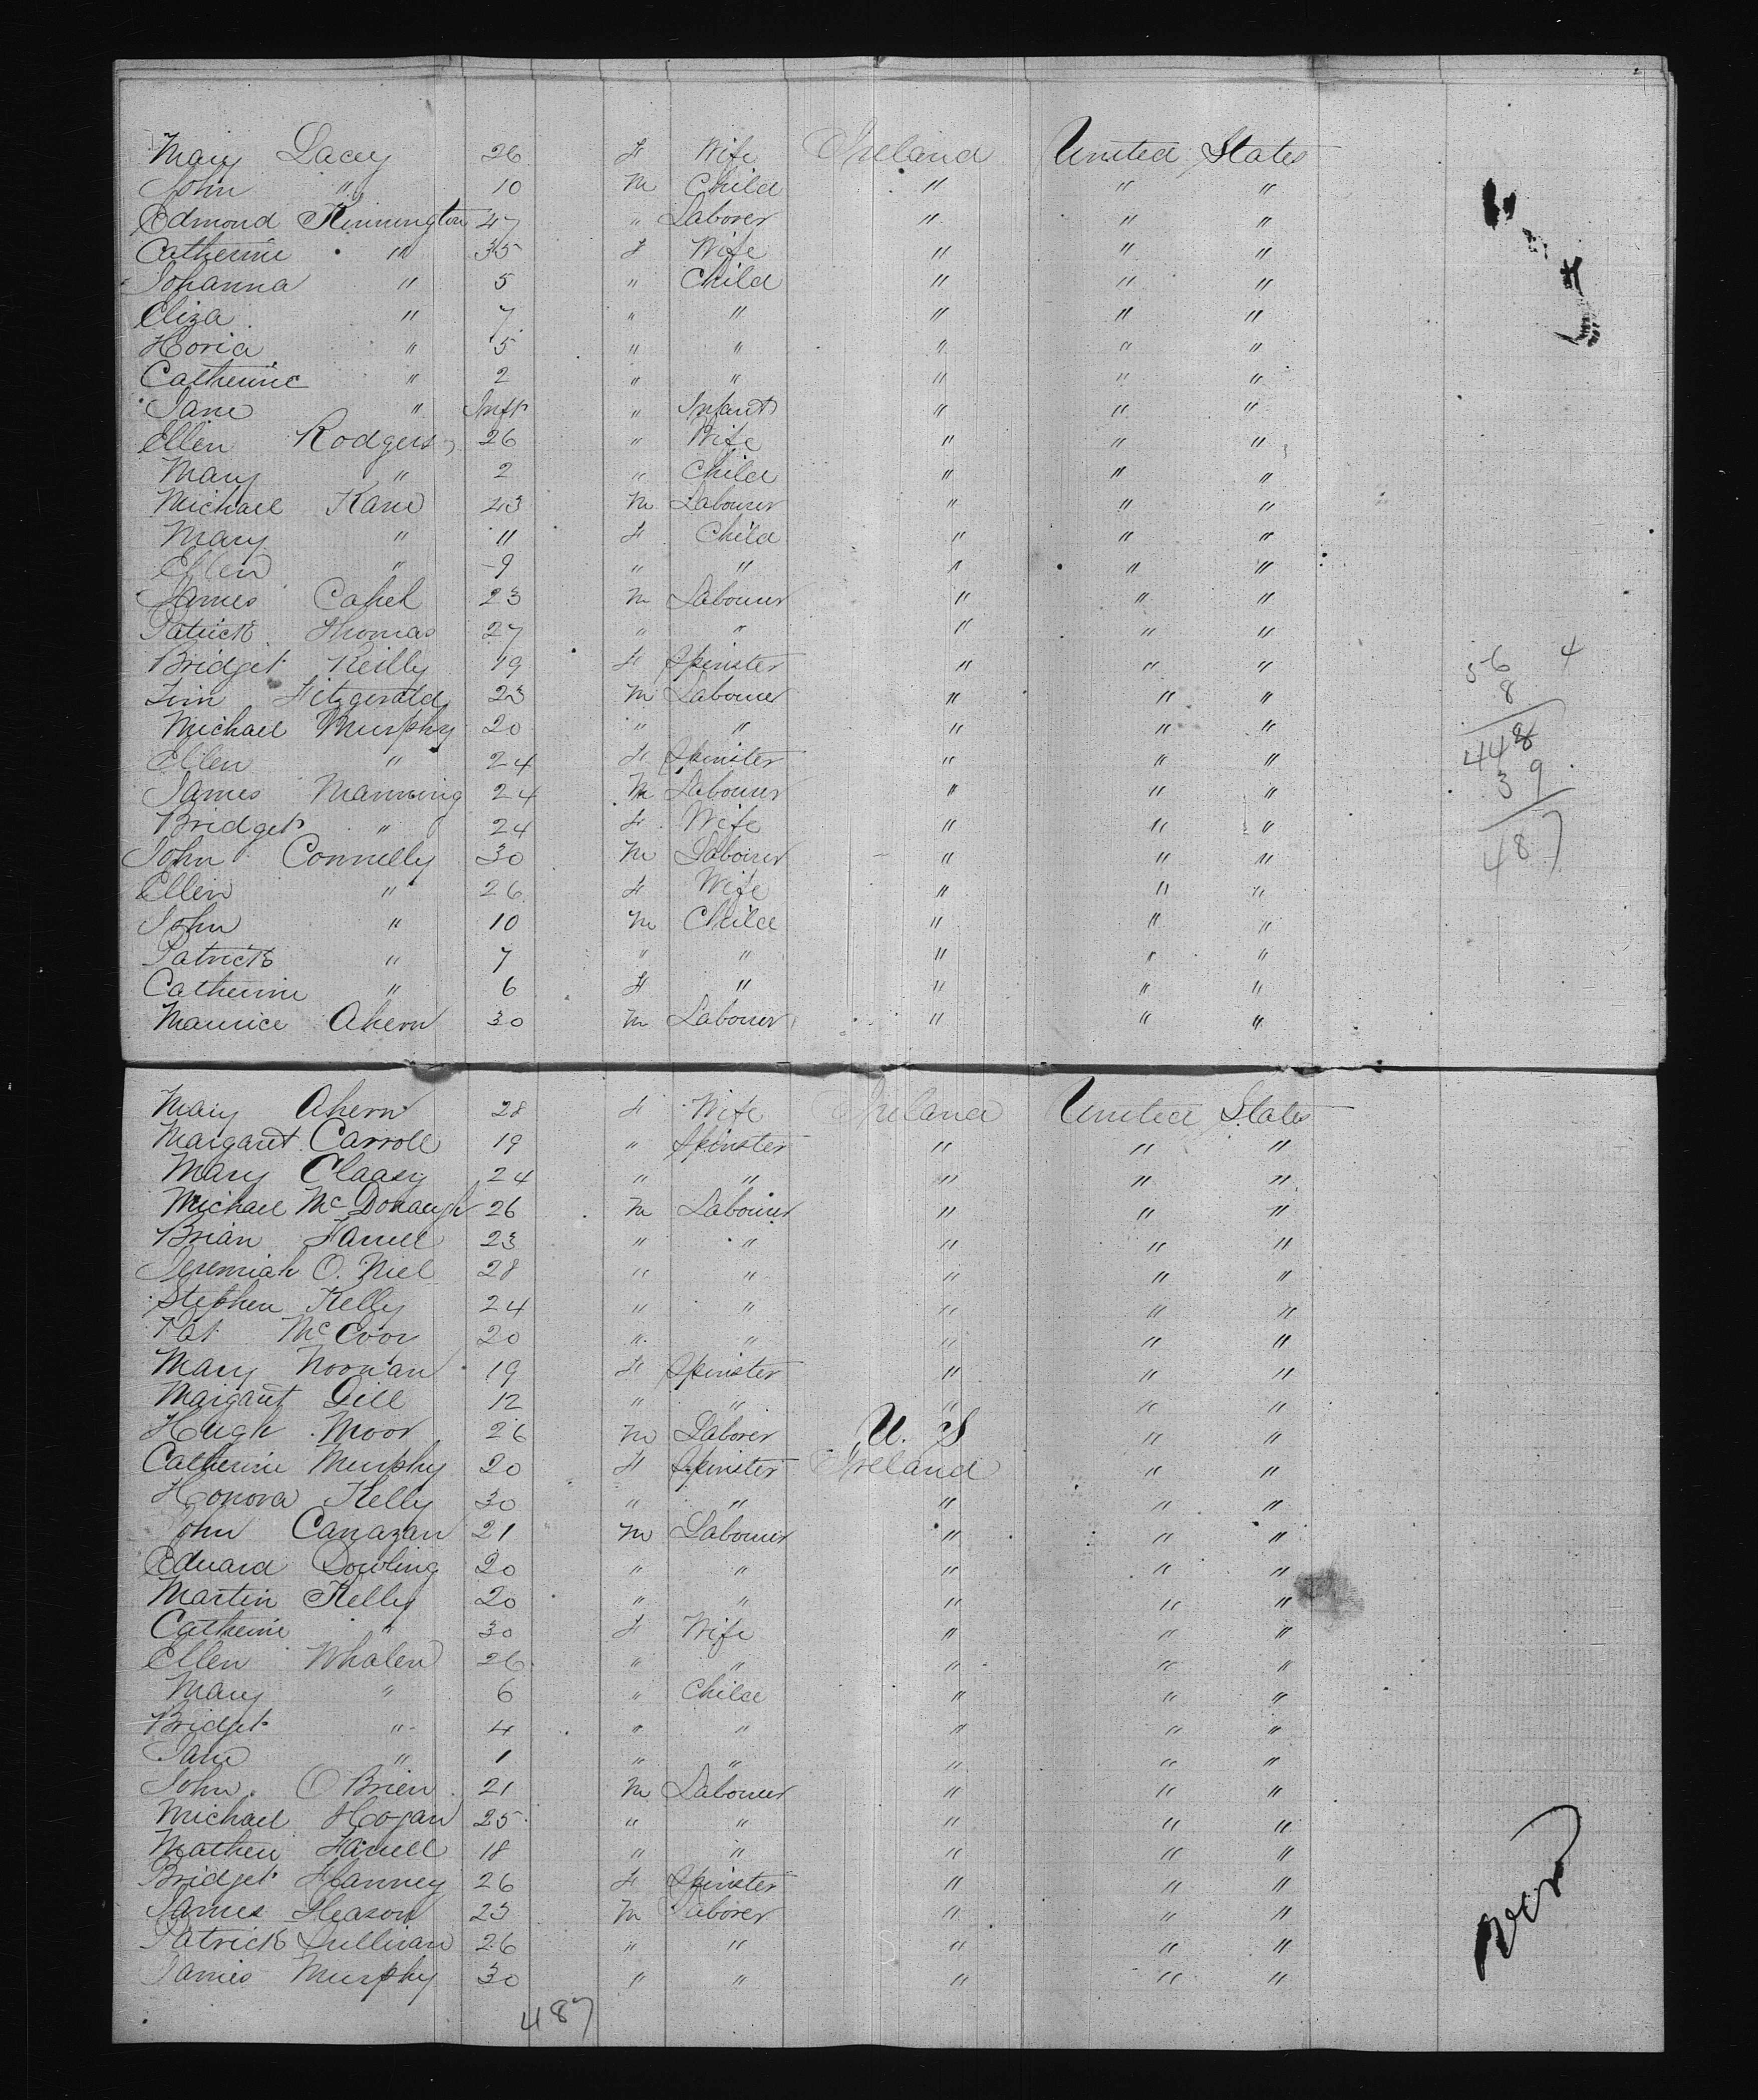 Mary Lacey 26 F Wife Ireland United States
John " 10 M Child " " "
Edmond Kinnington 47 " Laborer " " "
Catherine " 35 F Wife " " "
Johanna " 5 " Child " " "
Eliza " 7 " " " " "
Horia " 5 " " " " "
Catherine " 2 " " " " "
Jane " Inft " Infant " " "
Ellen Rodgers 26 " Wife " " "
Mary " 2 " Child " " "
Michael Kane 43 M Labourer " " "
Mary " 11 F Child " " "
Ellen " 9 " " " " "
James Cahel 23 M Labourer " " "
Patrick Thomas 27 " " " " "
Bridget Reilly 19 F Spinster " " "
56 4
Tim Fitzgerald 23 M Labourer " " "
8
Michael Murphy 20 " " " " "
Ellen " 24 F Spinster " " "
448
James Manning 24 M Labourer " " "
39
Bridget " 24 F Wife " " "
John Connelly 30 M Labourer " " "
487
Ellen " 26 F Wife " " "
John " 10 M Child " " "
Patrick " 7 " " " " "
Catherine " 6 F " " " "
Maurice Ahern 30 M Labourer " " "
Mary Ahern 28 F Wife Ireland United States
Margaret Carroll 19 " Spinster " " "
Mary Claasy 24 " " " " "
Michael McDonaugh 26 M Labourer " " "
Brian 23 " " " " "
Jeremiah O. Niel 28 " " " " "
Stephen Kelly 24 " " " " "
Pat McEvoy 20 " " " " "
Mary Noonan 19 F Spinster " " "
Margaret Gill 12 " " " " "
Hugh Moor 26 M Laborer U. S " "
Catherine Murphy 20 F Spinster Ireland " "
Honora Kelly 30 " " " " "
John Canazan 21 M Labourer " " "
Edward Dowling 20 " " " " "
Martin Kelly 20 " " " " "
Catherine " 30 F Wife " " "
Ellen Whalen 26 " " " " "
Mary " 6 " Child " " "
Bridget " 4 " " " " "
Jane " 1 " " " " "
John O Brien 21 M Labourer " " "
Michael Hogan 25 " " " " "
Mathew 18 " " " " "
Bridget Hanney 26 F Spinster " " "
James Gleason 23 M Laborer " " "
Patrick Sullivan 26 " " " " "
James Murphy 30 " " " " "
over
487